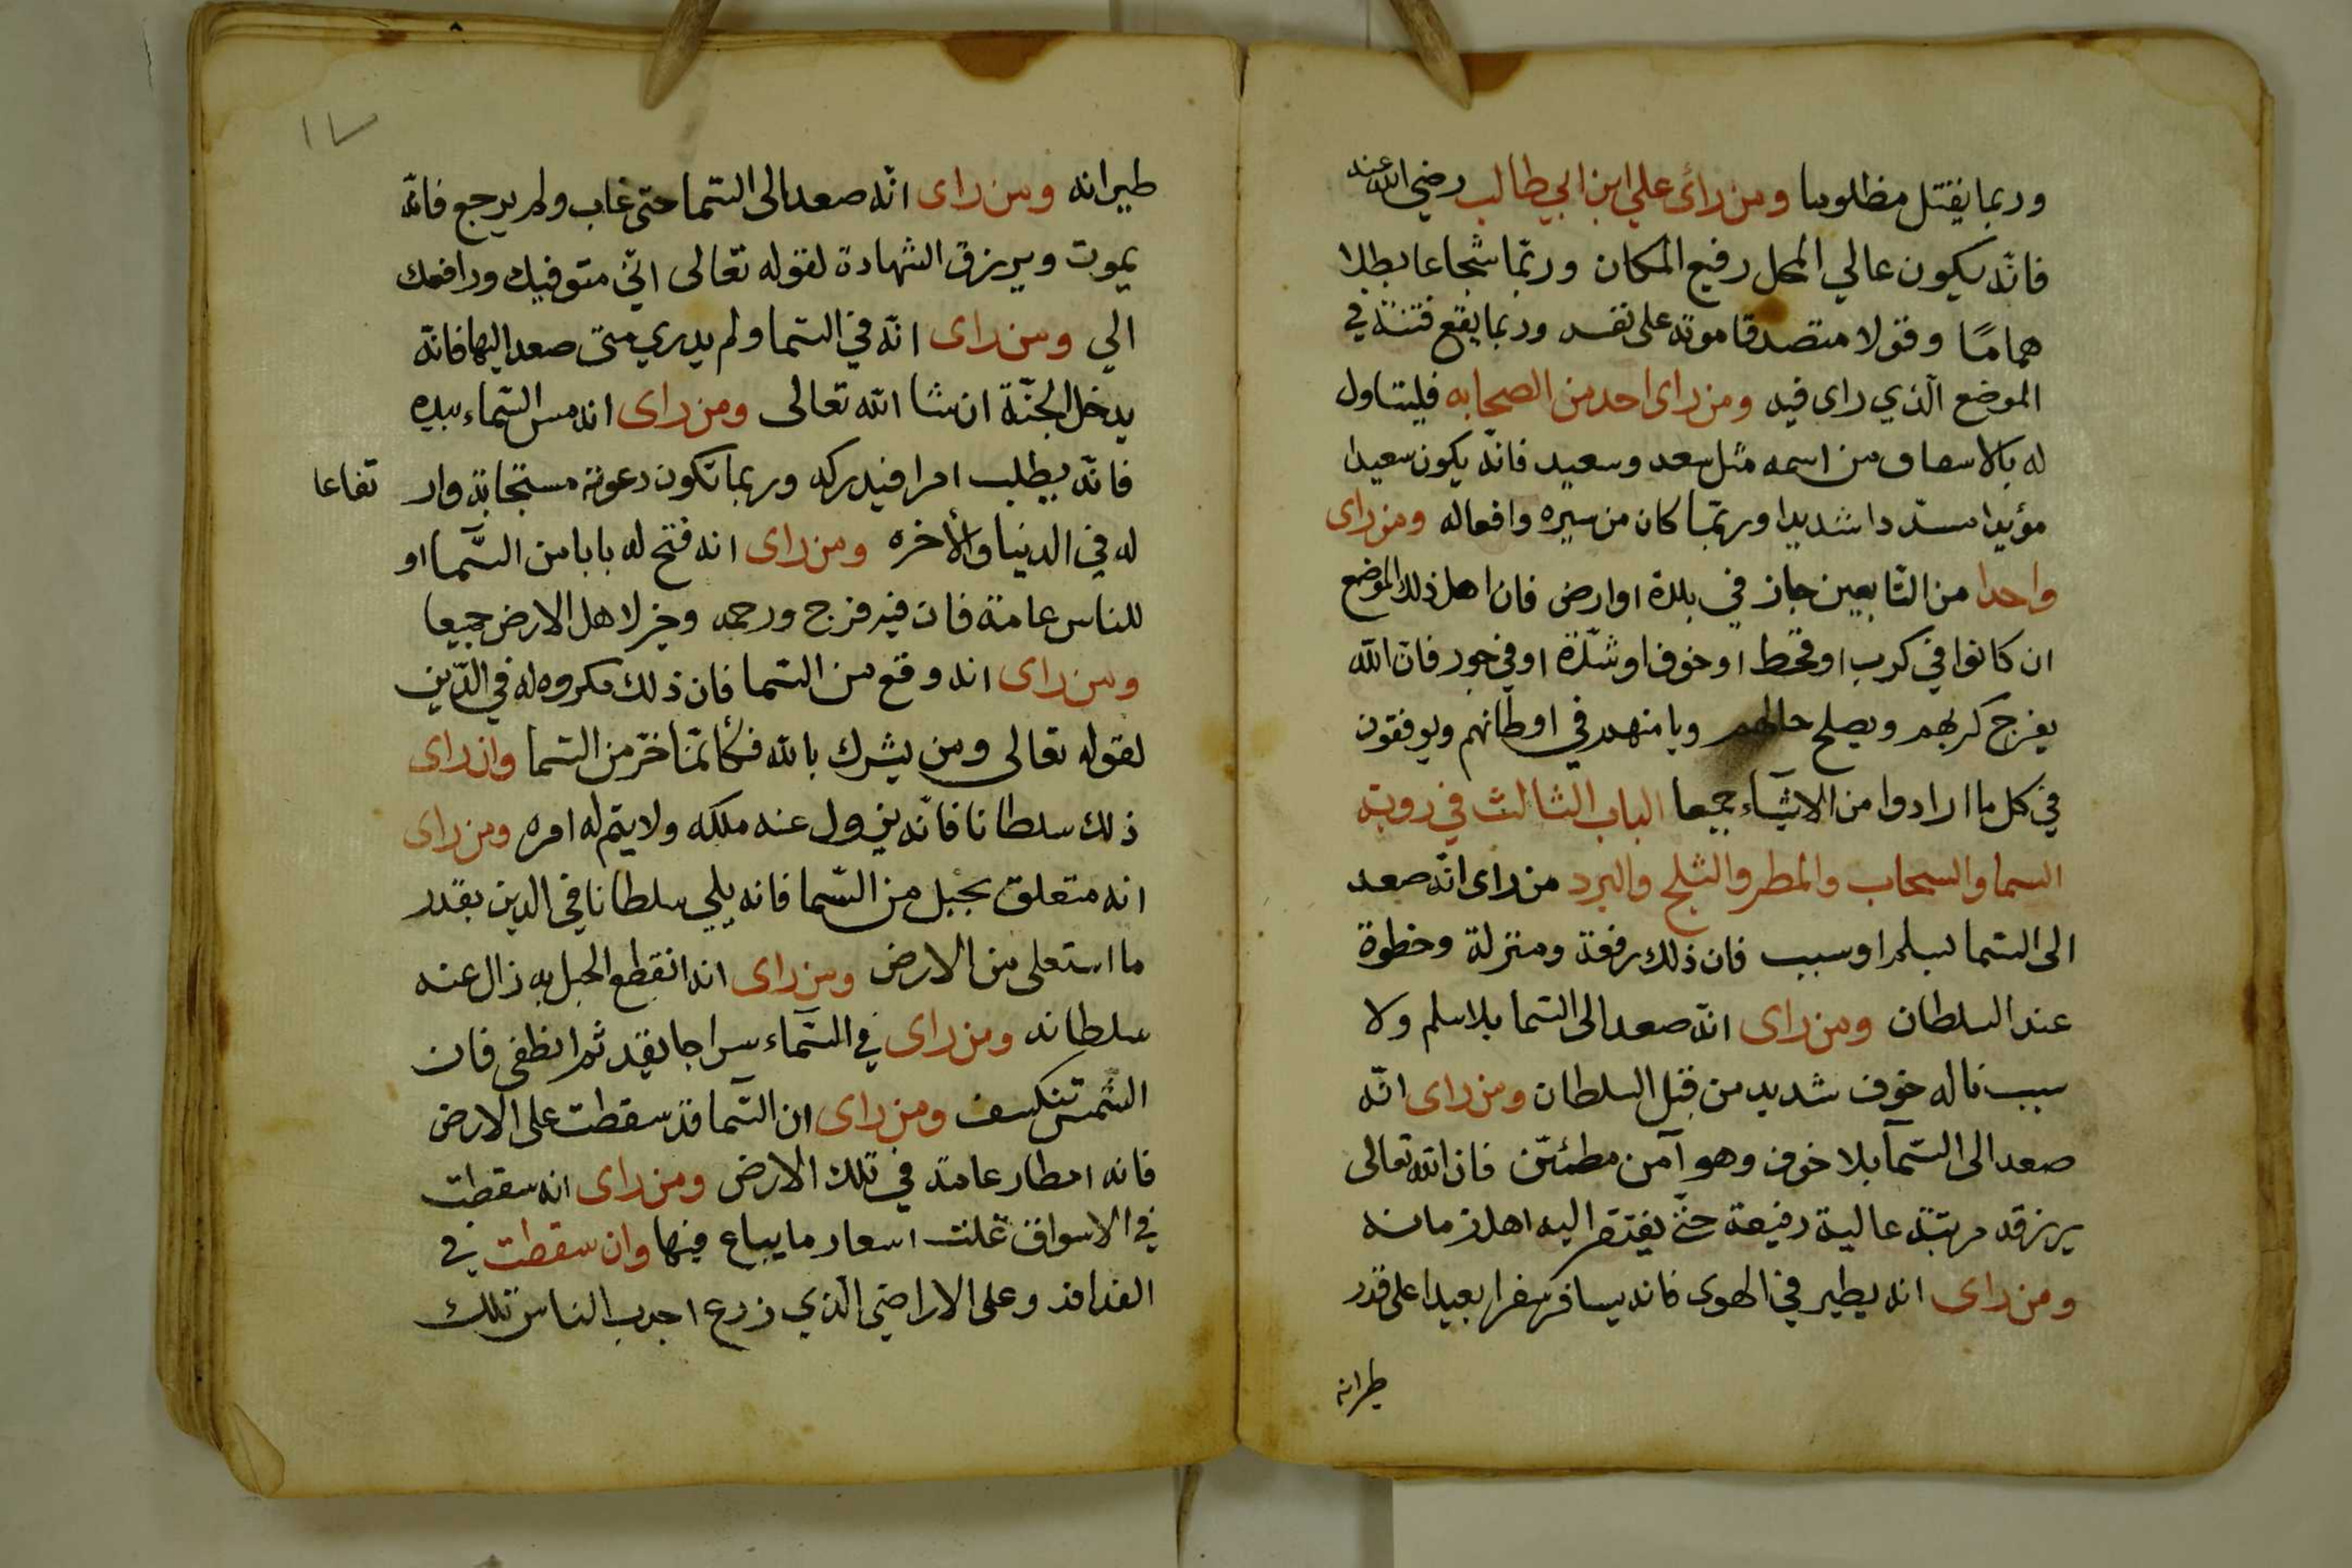 وربما يقتل مظلوما ومن رائ علي ابن ابي طالب رضي الله عنه
فانّه يكون عالي المحل رفيع المكان وربّما شجاعا بطلا
همامًا وقولا متصدقا موته على نفسه وربما يقع فتنة في
الموضع الّذي راى فيه ومن راى احد من الصحابه فليتاول
له بالاسعاف من اسمه مثل سعد وسعيد فانّه يكون سعيدا
مؤيدا مسدّدا شديدا وربّما كان من سيره وافعاله ومن راى
واحدا من التابعين جاز في بلدة او ارض فان اهل ذلك الموضع
ان كانوا في كرب او قحط او خوف او شدّة او في جور فان الله
يفرج كربهم ويصلح حالهم ويامنهم في اوطانهم ويوفقون
في كل ما ارادوا من الاشيآء جميعا الباب الثالث في روية
السما والسحاب والمطر والثلج والبرد من راى انّه صعد
الى السّما بسلم او سبب فان ذلك رفعة ومنزلة وخطوة
عند السلطان ومن راى انّه صعد الى السّما بلا سلم ولا
سبب ناله خوف شديد من قبل السلطان ومن راى انّه
صعد الى السّمآ بلا خوف وهو آمن مطمئنّ فان الله تعالى
يرزقه مرتبة عالية رفيعة حتّى يفتقر اليه اهل زمانه
ومن راى انه يطير في الهوى فانه يسافر سفرا بعيدا على قدر
طيرانه
١٧
طيرانه ومن راى انّه صعد الى السّما حتى غاب ولم يرجع فانّه
يموت ويرزق الشهادة لقوله تعّالى انّي متوفيك ورافعك
الي ومن راى انّه في السّما ولم يدري متى صعد اليها فانّه
يدخل الجنّة ان شا الله تعالى ومن راى انه مس السّماء بيده
فانّه يطلب امرا فيدركه وربما تكون دعوته مستجابة وار تفاعا
له في الدنيا والأخره ومن راى انه فتح له بابا من السّما او
للناس عامة فان فيه فرج ورحمه وخير لاهل الارض جميعا
ومن راى انه وقع من السّما فان ذلك مكروه له في الدّين
لقوله تعالى ومن يشرك بالله فكأنّما خرّ من السّما وان راى
ذلك سلطانا فانّه يزول عنه ملكه ولا يتم له امره ومن راى
انه متعلق بحبل من السّما فانه يلي سلطانا في الدين بقدر
ما استعلى من الارض ومن راى انه انقطع الحبل به زال عنه
سلطانه ومن راى في السّمآء سراجا يقد ثم انطفى فان
الشمس تنكسف ومن راى ان السّمآ قد سقطت على الارض
فانه امطار عامة في تلك الارض ومن راى انه سقطت
في الاسواق غلت اسعار ما يباع فيها وان سقطت في
الفدافد وعلى الاراضي الّذي زرع اجدب الناس تلك